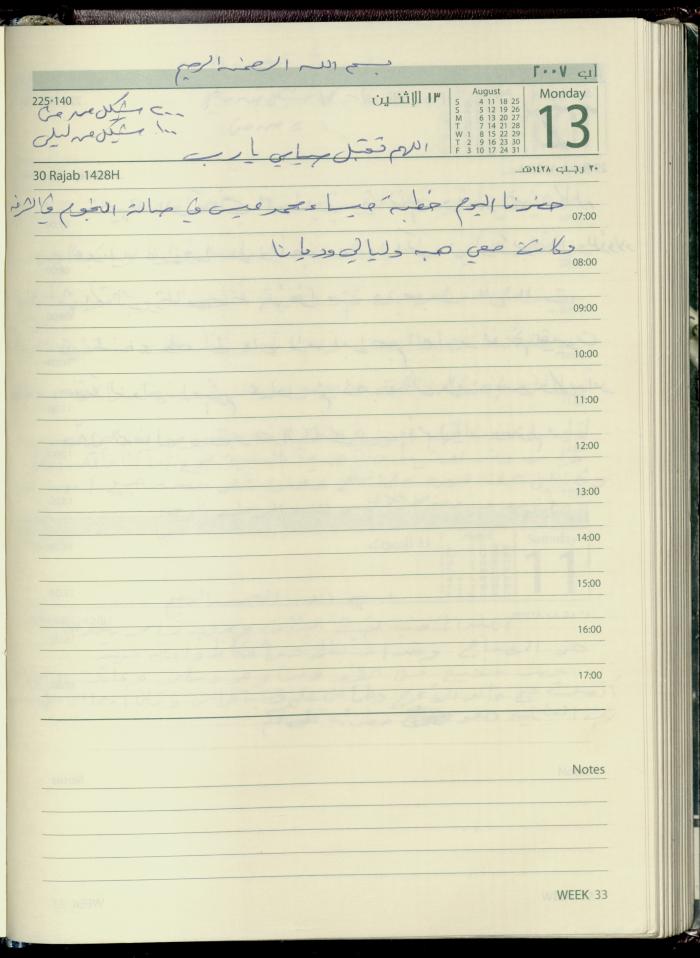 بسم الله الرحمن الرحيم
آب ٢٠٠٧
225-140
٢٠٠ شيكل من
١٠٠ شيكل من ليلى
١٣ الاثنين
August
S 4 11 18 25
S 5 12 19 26
M 6 13 20 27
T 7 14 21 28
W 1 8 15 22 29
T 2 9 16 23 30
F 3 10 17 24 31
Monday
13
اللهم تقبل صيامي يا رب
30 Rajab 1428H
٣٠ رجب ١٤٢٨هـ
حضرنا اليوم خطبة ميساء محمد عيسى في صالة النجوم في
07:00
وكانت معي هبه وليالي وديانا
08:00
09:00
10:00
11:00
12:00
13:00
14:00
15:00
16:00
17:00
Notes
WEEK 33